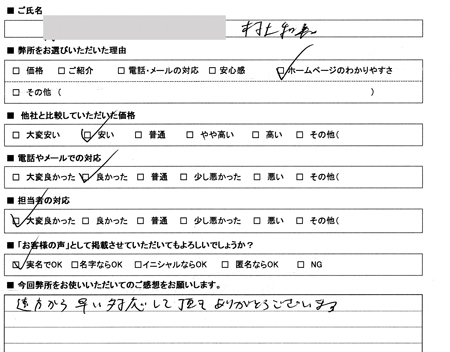 ■ ご氏名
村上和
■ 弊所をお選びいただいた理由
□ 価格 □ ご紹介 □ 電話・メールの対応 □ 安心感 □ ホームページのわかりやすさ
□ その他 ( )
■ 他社と比較していただいた価格
□ 大変安い □ 安い □ 普通 □ やや高い □ 高い □ その他(
■ 電話やメールでの対応
□ 大変良かった □ 良かった □ 普通 □ 少し悪かった □ 悪い □ その他(
■ 担当者の対応
□ 大変良かった □ 良かった □ 普通 □ 少し悪かった □ 悪い □ その他(
■「お客様の声」として掲載させていただいてもよろしいでしょうか?
□ 実名でOK □名字ならOK □イニシャルならOK □ 匿名ならOK □ NG
■ 今回弊所をお使いいただいてのご感想をお願いします。
遠方から早い対応して頂きありがとうございます